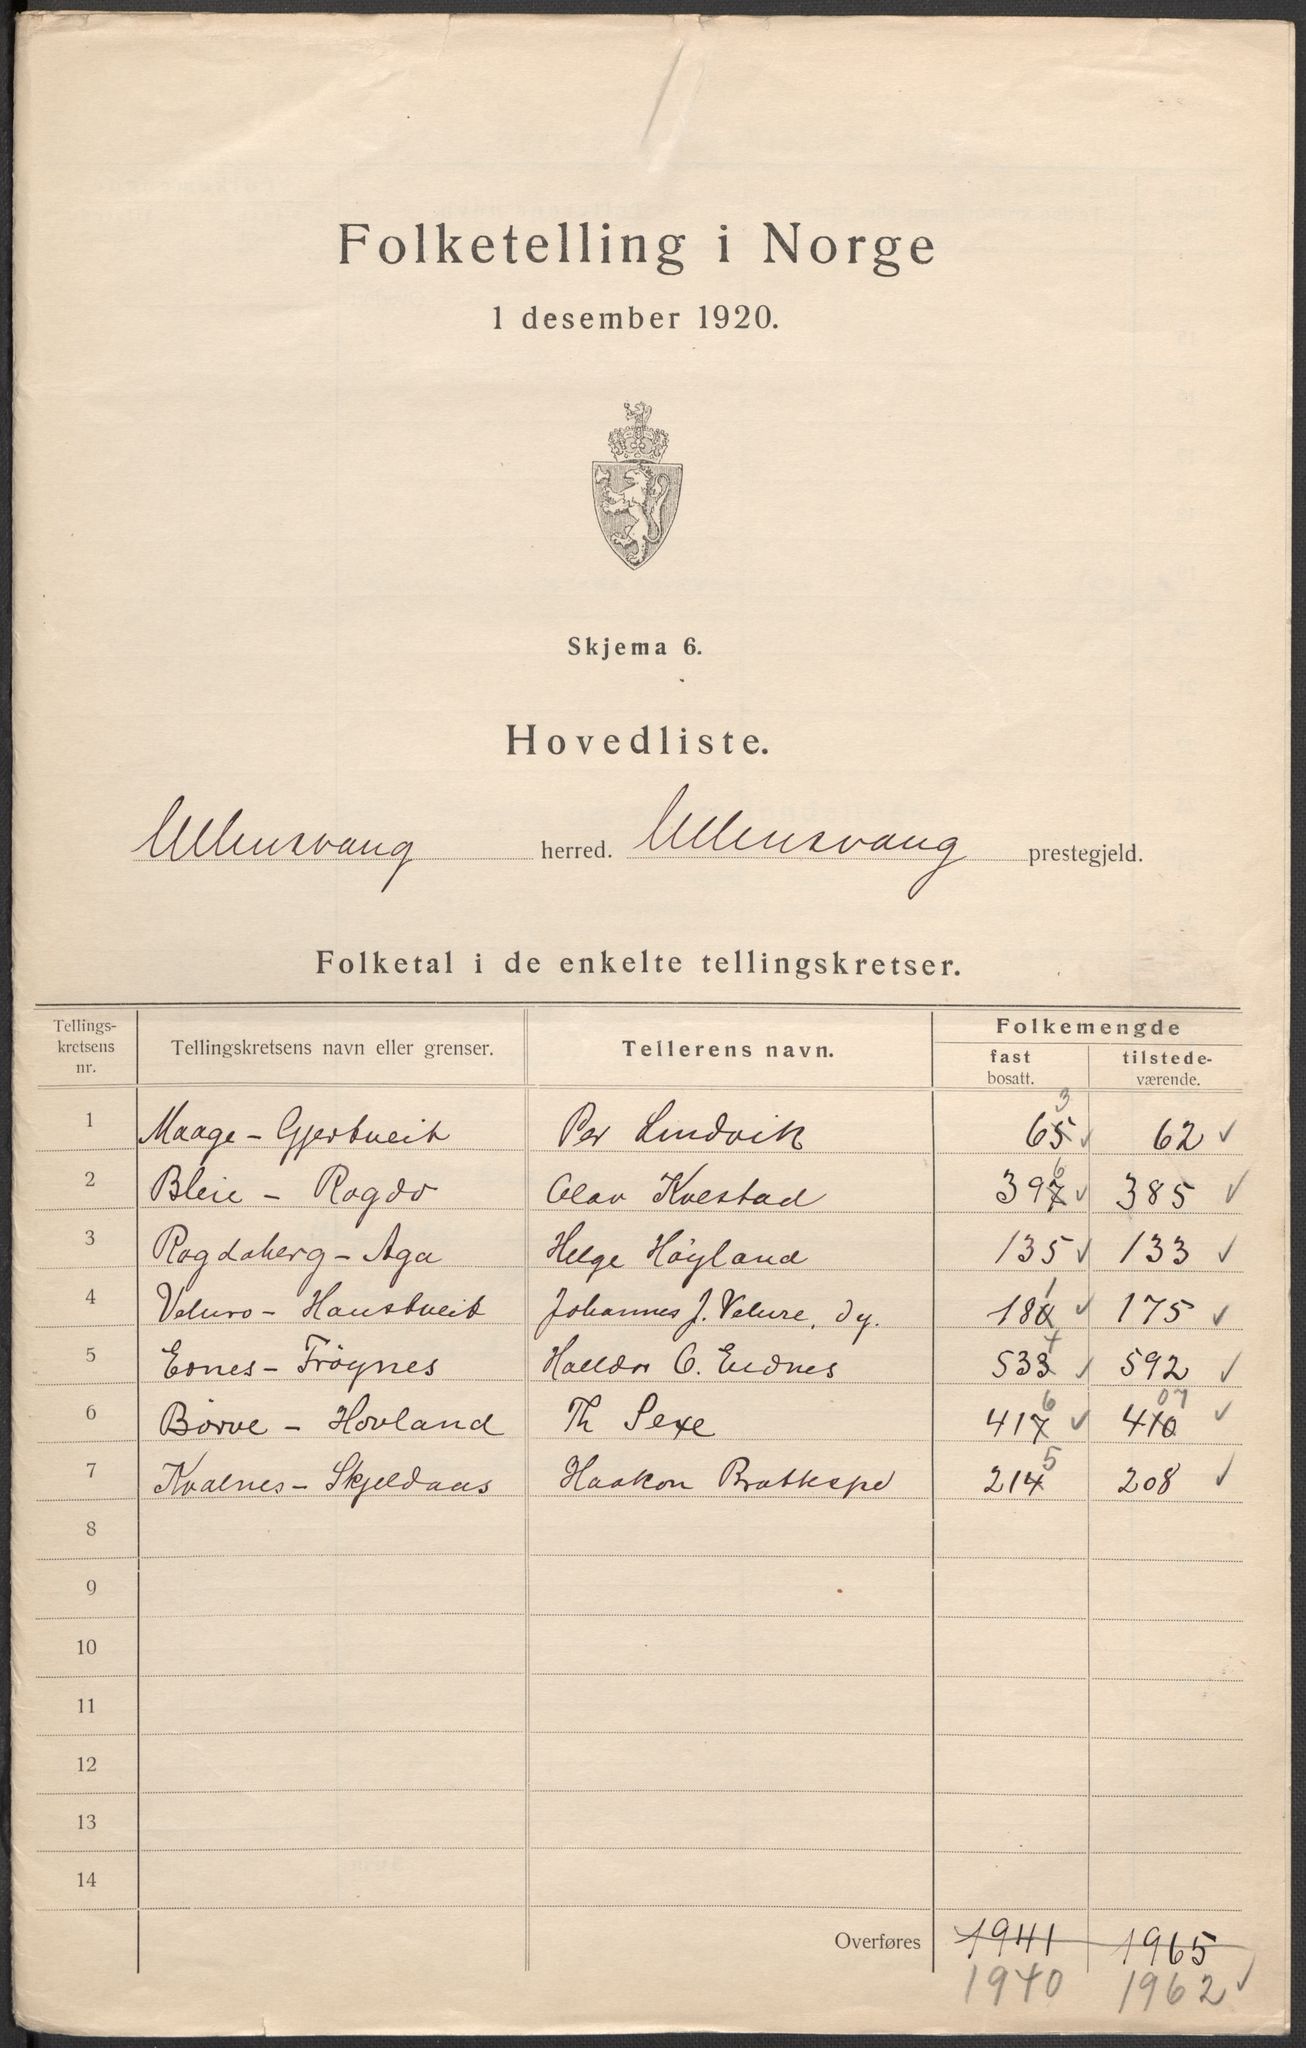 Folketelling i Norge
1 desember 1920.
Skjema 6.
Hovedliste.
Ullensvang herred. Ullensvang prestegjeld.
Folketal i de enkelte tellingskretser.
Tellings-
kretsens
nr.
Tellingskretsens navn eller grenser.
Tellerens navn.
Folkemengde
fast
bosatt.
tilstede-
værende.
1 Maage - Gjertveit Per Lindvik 65 3 ✓ 62 ✓
2 Bleie - Rogdo Olav Kvestad 397 6 ✓ 385 ✓
3 Rogdaberg - Aga Helge Höyland 135 ✓ 133 ✓
4 Velure - Haustveit Johannes J. Velure, 180 1 ✓ 175 ✓
5 Ednes - Fröynes Halldor O. Eidnes 533 4 ✓ 592 ✓
6 Börve - Hovland Th Sexe 417 6 ✓ 410 07 ✓
7 Kvalnes - Skjeldaas Haakon Brattespe 214 5 208 ✓
8
9
10
11
12
13
14
Overføres 1941 1965
1940 1962 ✓